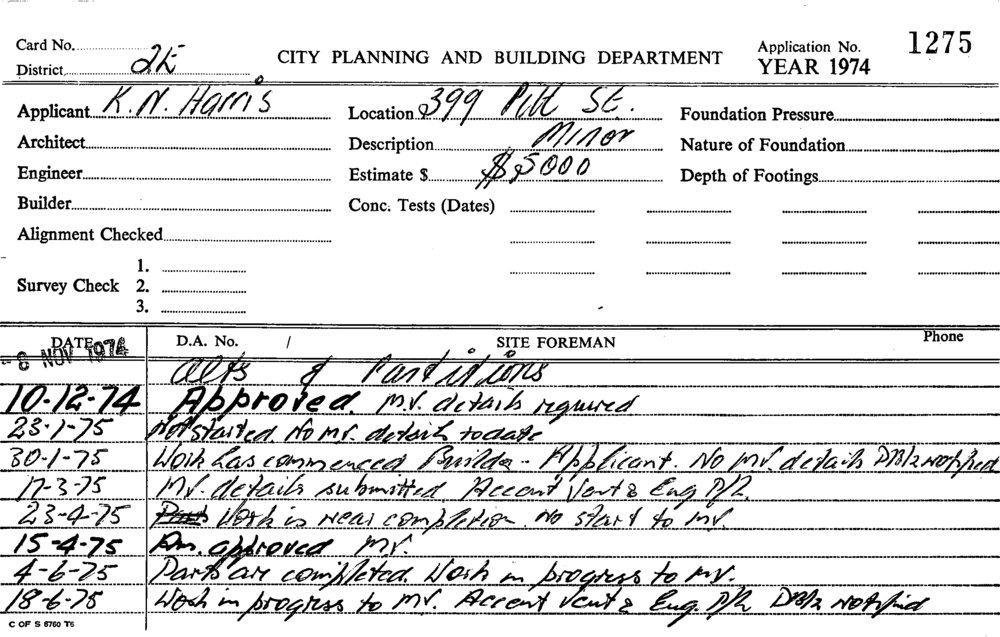 Card No.
District 2E
CITY PLANNING AND BUILDING DEPARTMENT
Application No. 1275
YEAR 1974
Applicant K. N. Harris
Location 399 Pitt St.
Foundation Pressure
Architect
Description Minor
Nature of Foundation
Engineer
Estimate $ $5000
Depth of Footings
Builder
Conc. Tests (Dates)
Alignment Checked
Survey Check 1.
2.
3.
DATE D.A. No. / SITE FOREMAN Phone
- 8 NOV 1974 Alts & Partitions
10-12-74 Approved. M.V. details required
23-1-75 Not started. No M.V. details to date
30-1-75 Work has commenced Builder - Applicant. No M.V. details notified
17-3-75 M.V. details submitted. Accent Vent & Eng P/L.
23-4-75 Work is near completion. No start to M.V.
15-4-75 Am. approved M.V.
4-6-75 Parts are completed. Work in progress to M.V.
18-6-75 Work in progress to M.V. Accent Vent & Eng. P/L notified
C OF S 6760 T5